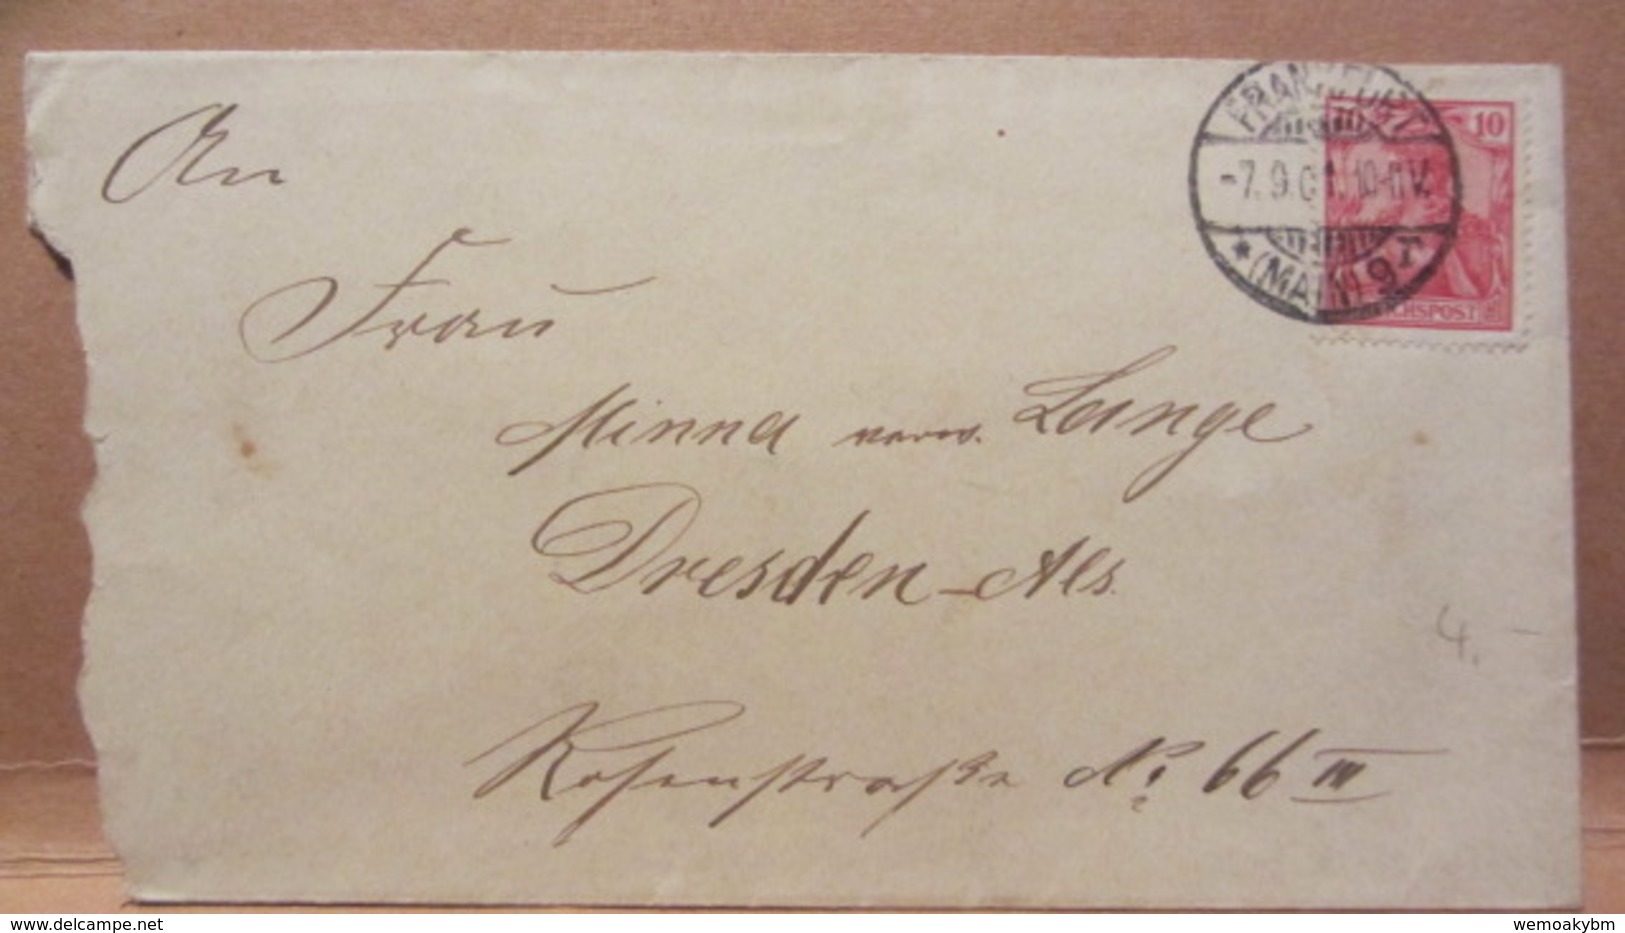 An
Frau
Minna verw. Lange
Dresden-Als.
Rosenstraße No. 66 III
FRANKFURT
-7.9.01. 10-11V.
* (MAIN) 9
10
REICHSPOST
4.-
delcampe.net
wemoakybm